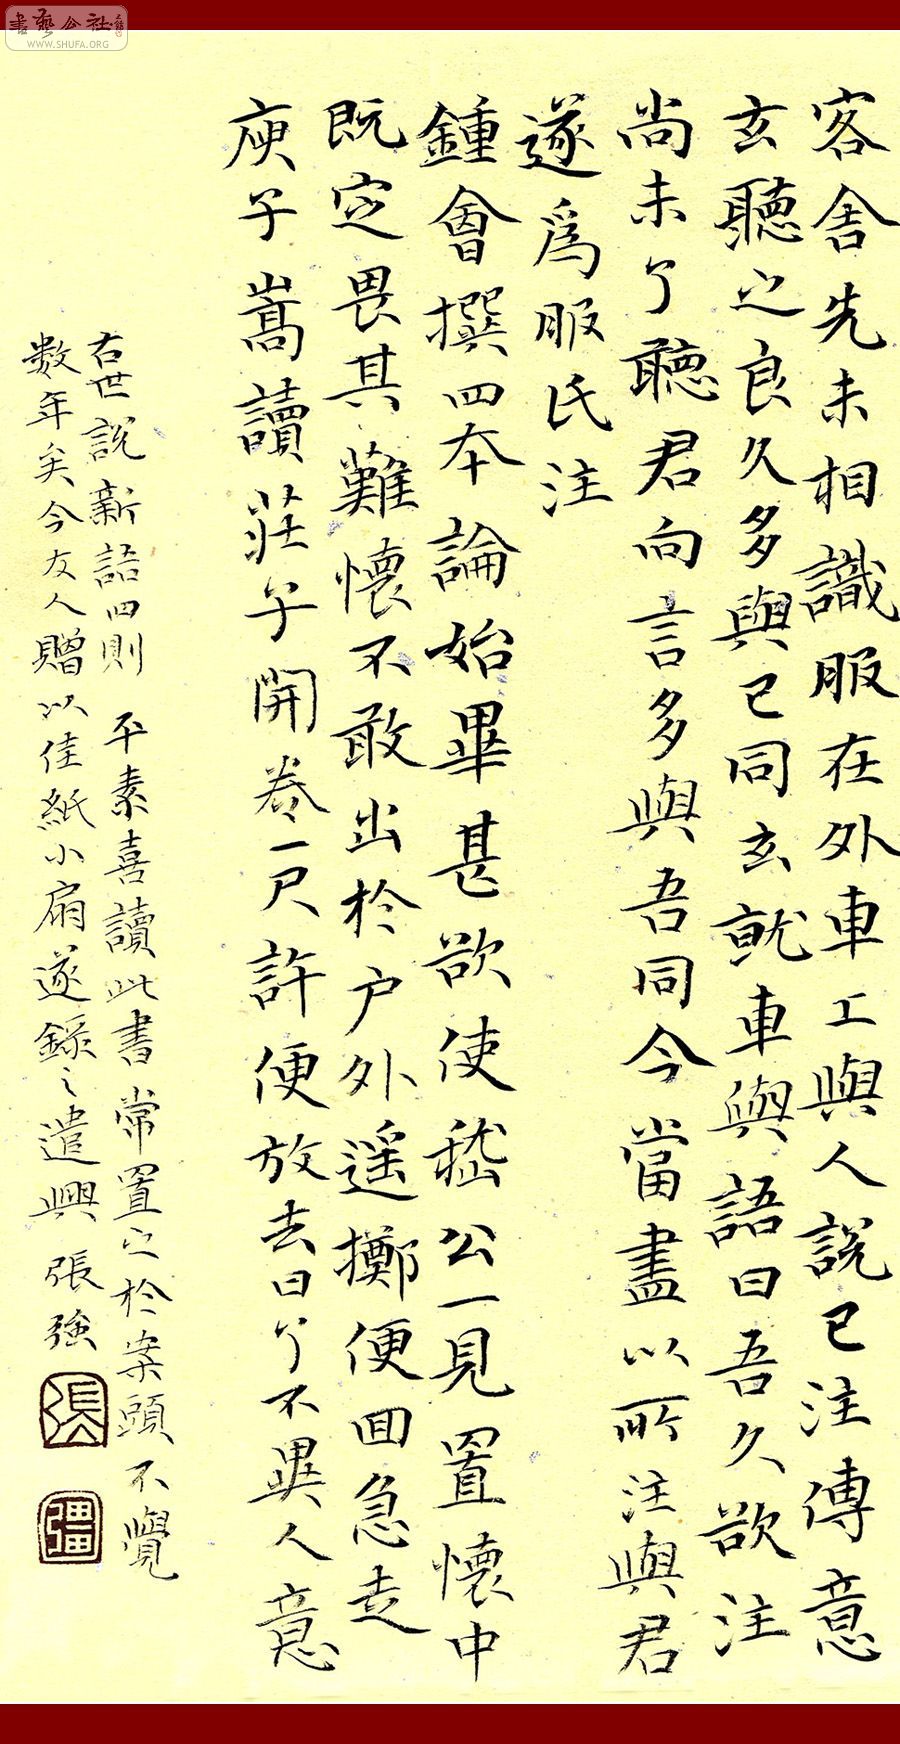 客舍先未相識服在外車工與人說已注傳意
玄聽之良久多與已同玄就車與語曰吾久欲注
尚未了聽君向言多與吾同今當盡以所注與君
遂爲服氏注
鍾會撰四本論始畢甚欲使嵇公一見置懷中
既定畏其難懷不敢出於户外遥擲便回急走
庾子嵩讀莊子開卷一尺許便放去曰了不異人意
右世說新語四則 平素喜讀此書常置之於案頭不覺
数年矣今友人贈以佳紙小扇遂錄之遣興 張強
張
彊
書藝公社
WWW.SHUFA.ORG